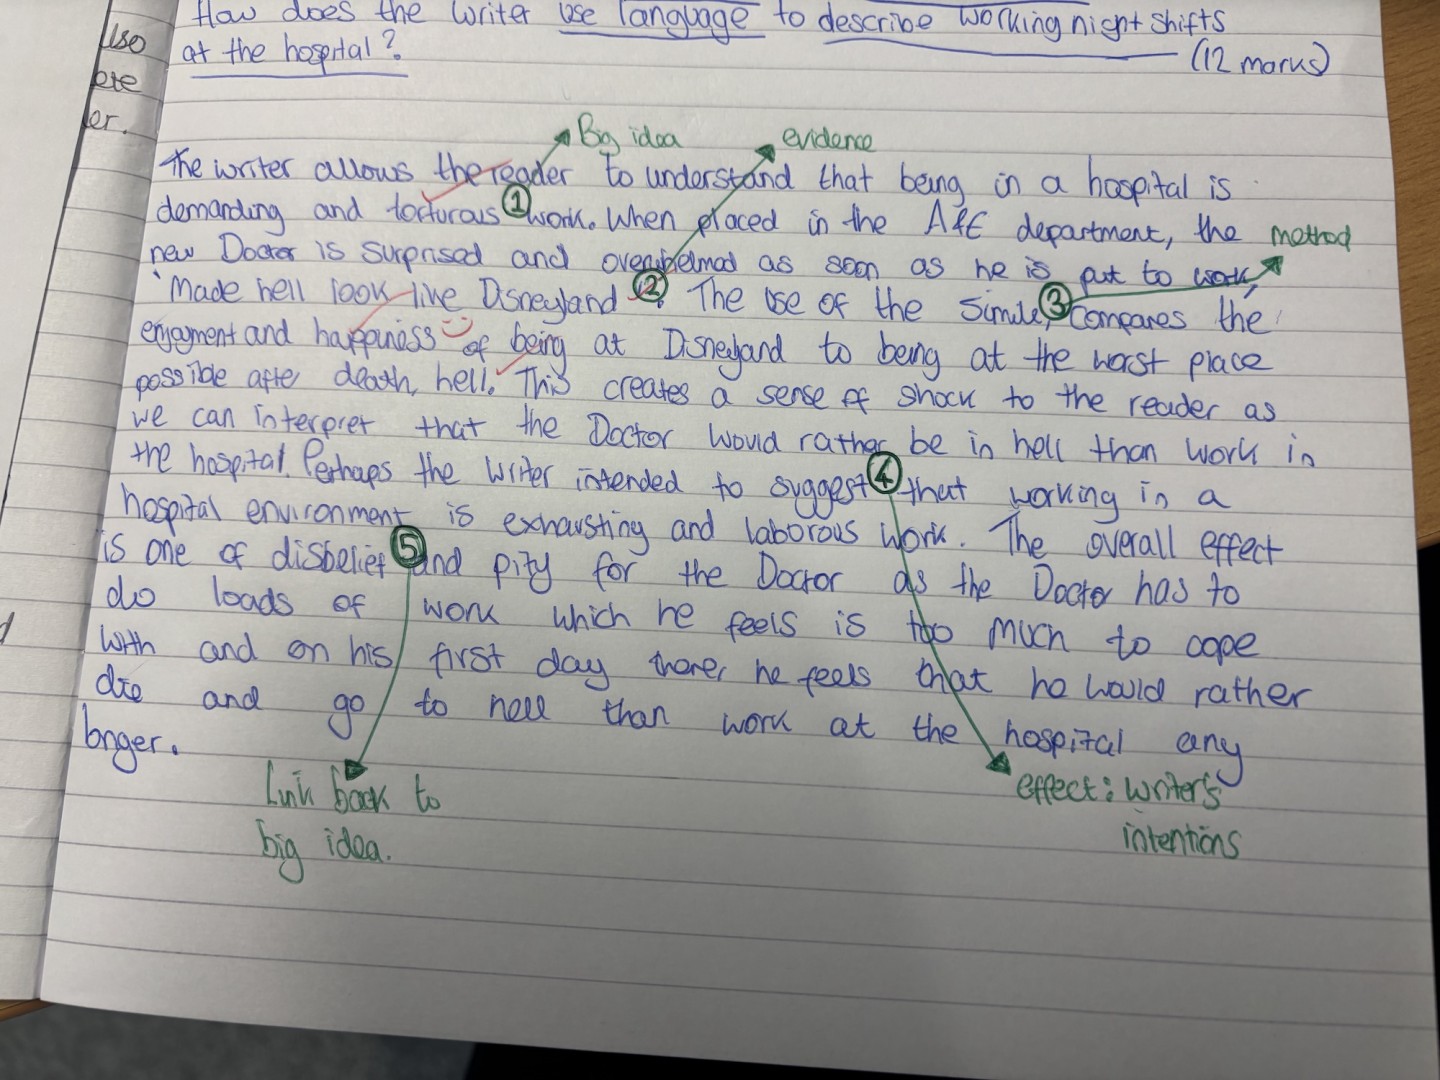 uso
ete
er.
How does the writer use language to describe working night shifts
at the hospital?
(12 marks)
Big idea
evidence
The writer allows the reader to understand that being in a hospital is
demanding and torturous ① work. When placed in the A&E department, the
method
new Doctor is surprised and overwhelmed as soon as he is put to work,
'Made hell look like Disneyland ②'. The use of the simile, ③ compares the
enjoyment and happiness of being at Disneyland to being at the worst place
possible after death, hell. This creates a sense of shock to the reader as
we can interpret that the Doctor would rather be in hell than work in
the hospital. Perhaps the writer intended to suggest ④ that working in a
hospital environment is exhausting and laborous work. The overall effect
is one of disbelief ⑤ and pity for the Doctor as the Doctor has to
do loads of work which he feels is too much to cope
with and on his first day there, he feels that he would rather
die and go to hell than work at the hospital any
longer.
Link back to
big idea.
effect: writer's
intentions